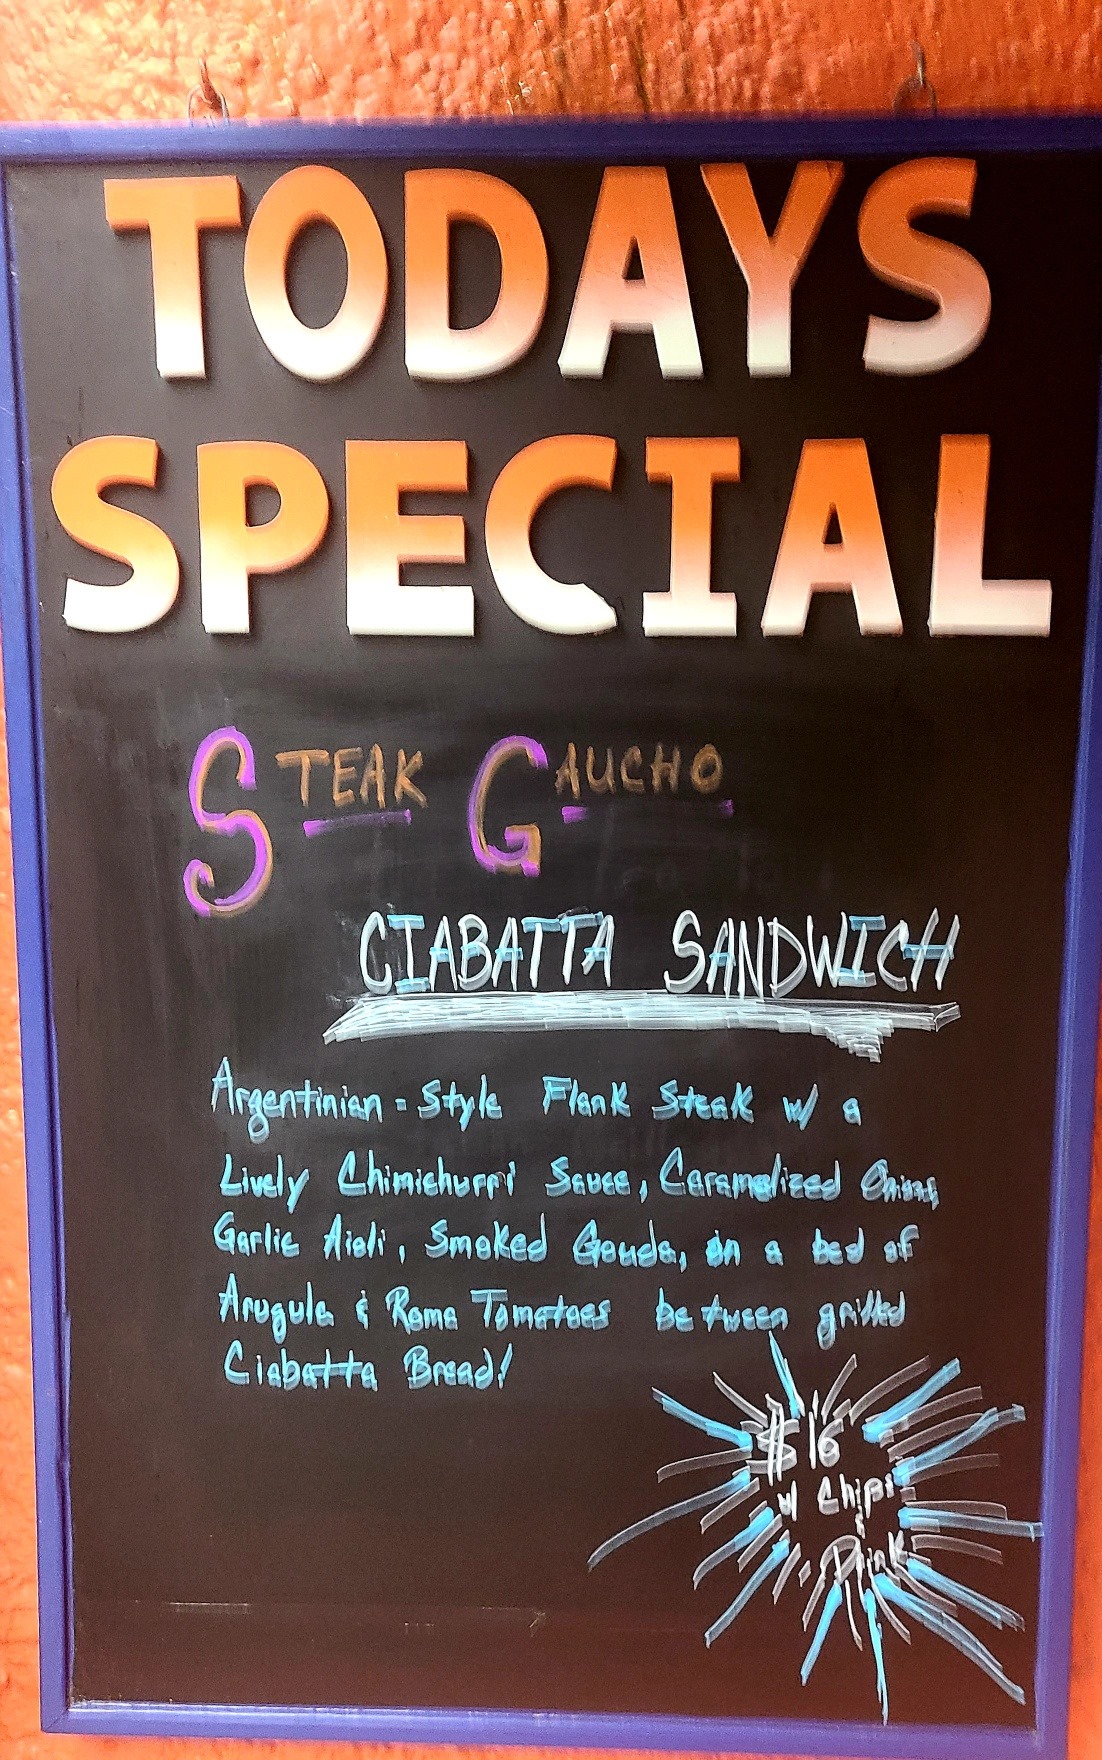 TODAYS
SPECIAL
STEAK GAUCHO
CIABATTA SANDWICH
Argentinian-Style Flank Steak w/ a
Lively Chimichurri Sauce, Caramelized Onions,
Garlic Aioli, Smoked Gouda, on a bed of
Arugula & Roma Tomatoes between grilled
Ciabatta Bread!
$16
w/ Chips
&
Drink